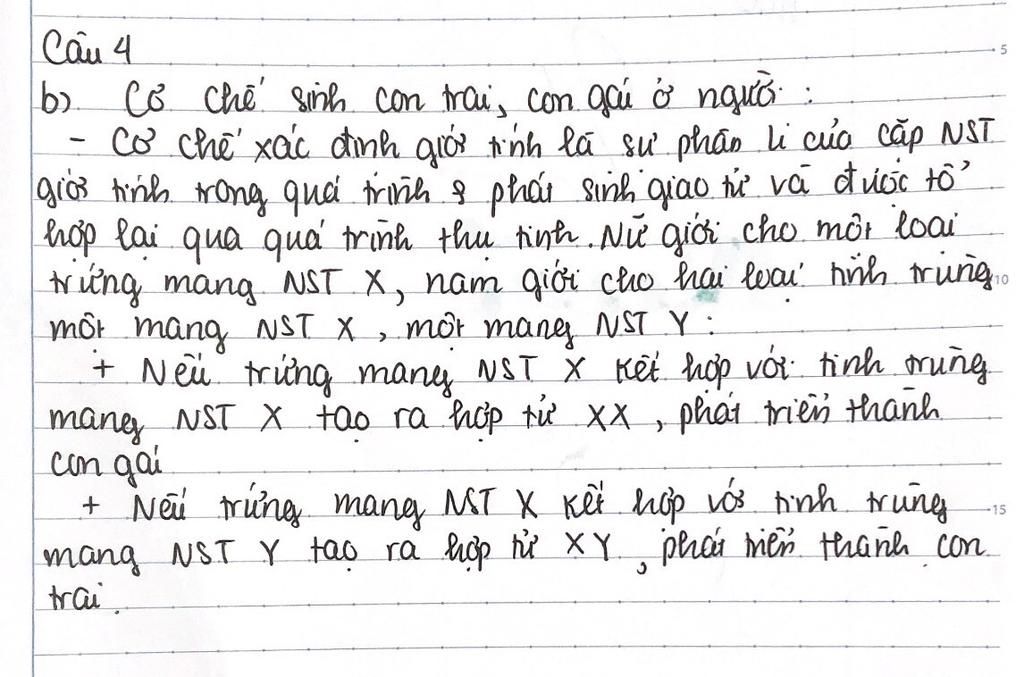 Câu 4
b) Cơ chế sinh con trai, con gái ở người:
- Cơ chế xác định giới tính là sự phân li của cặp NST
giới tính trong quá trình phát sinh giao tử và được tổ
hợp lại qua quá trình thụ tinh. Nữ giới cho một loại
trứng mang NST X, nam giới cho hai loại tinh trùng
một mang NST X, một mang NST Y:
+ Nếu trứng mang NST X kết hợp với tinh trùng
mang NST X tạo ra hợp tử XX, phát triển thành
con gái
+ Nếu trứng mang NST X kết hợp với tinh trùng
mang NST Y tạo ra hợp tử XY, phát triển thành con
trai.
5
10
15